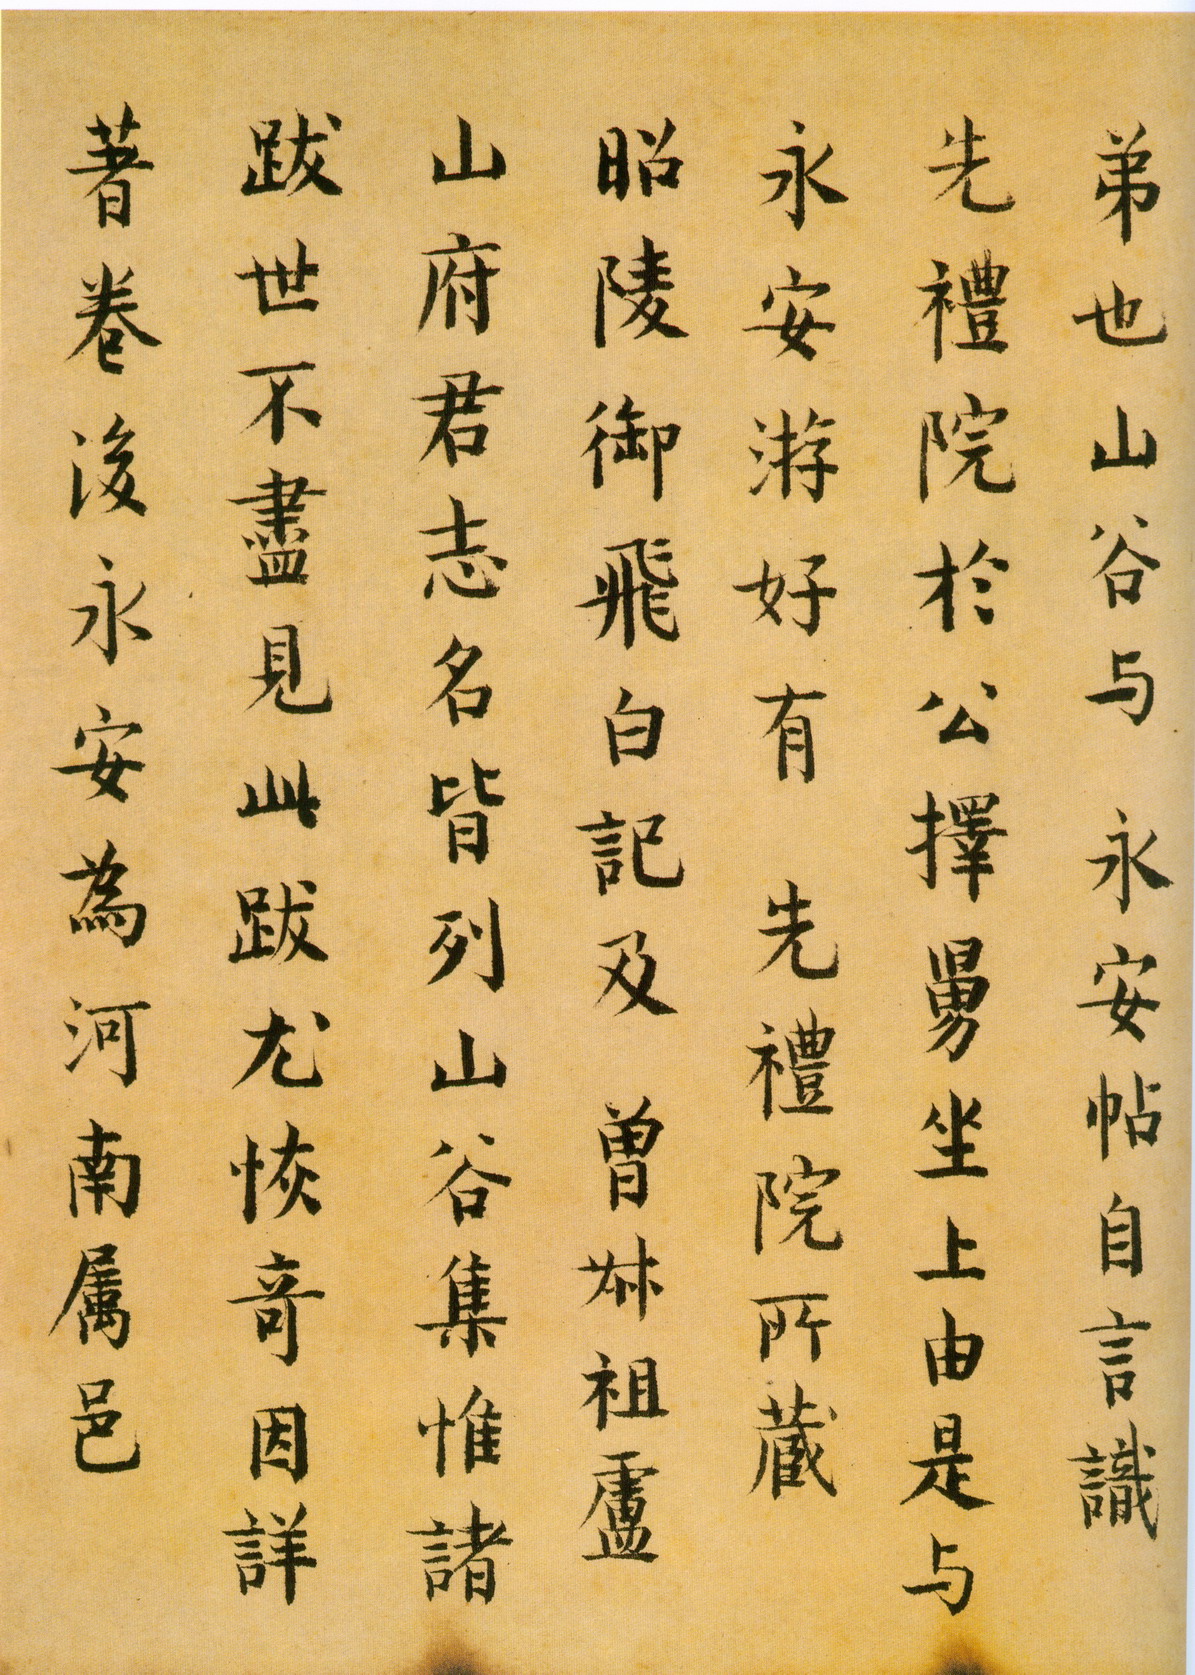 弟也山谷与 永安帖自言識
先禮院於公擇舅坐上由是与
永安游好有 先禮院所藏
昭陵御飛白記及 曾叔祖盧
山府君志名皆列山谷集惟諸
跋世不盡見此跋尤恢奇因詳
著卷後永安為河南屬邑